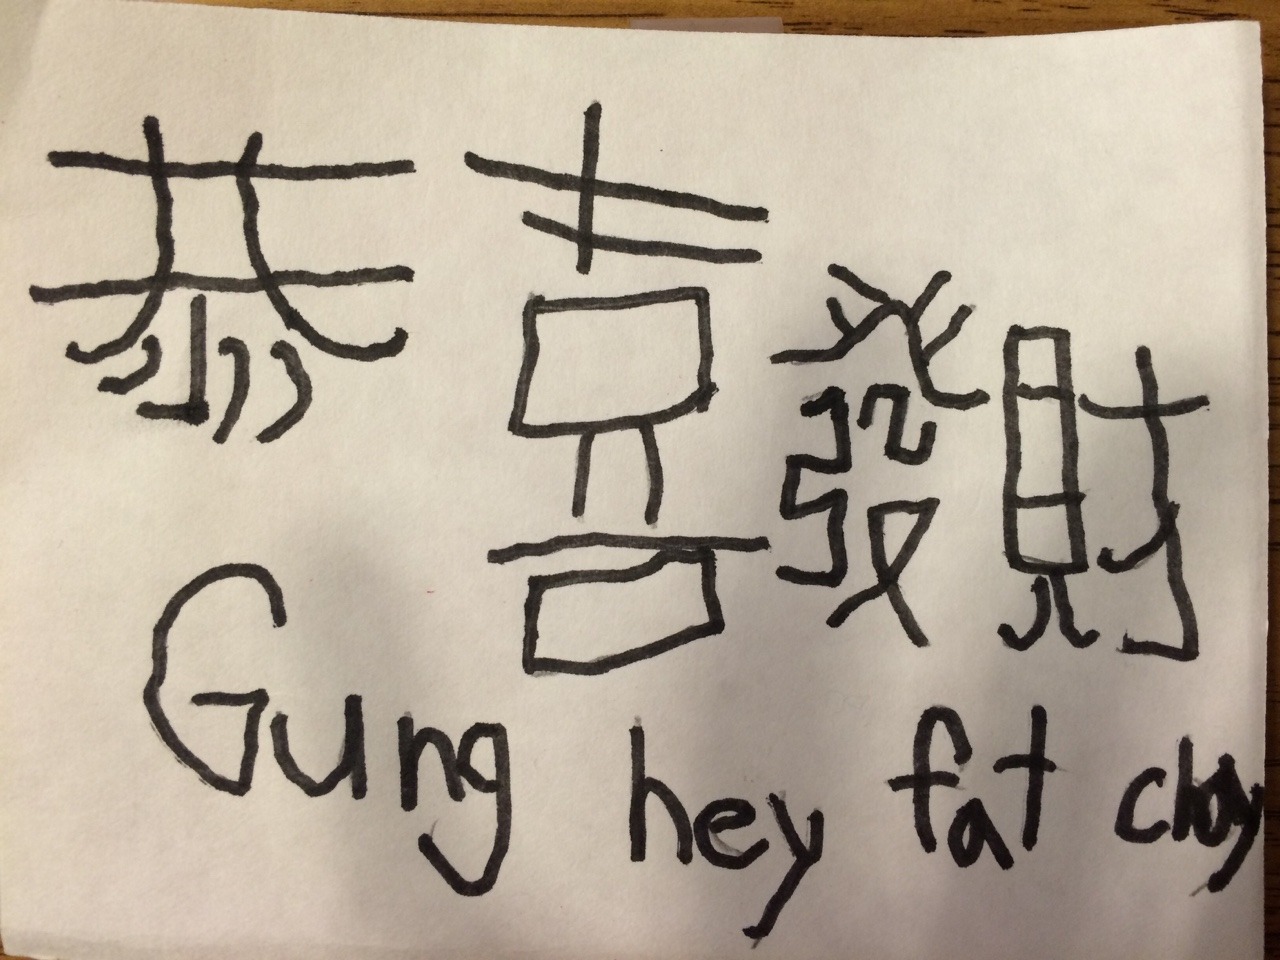 恭喜發財
Gung hey fat choy